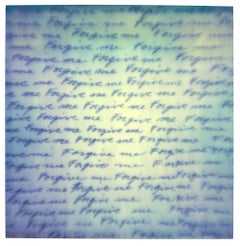 me Forgive me Forgive me
Forgive me Forgive me Forgive
me Forgive me Forgive me
Forgive me Forgive me Forgive me
Forgive me Forgive me Forgive me
me Forgive me Forgive me Forgive
Forgive me Forgive me Forgive me
me Forgive me Forgive me Forgive
Forgive me Forgive me Forgive me
me Forgive me Forgive me Forgive
Forgive me Forgive me Forgive me
Forgive me Forgive me Forgive
me Forgive me Forgive me
Forgive me Forgive me Forgive
me Forgive me Forgive me